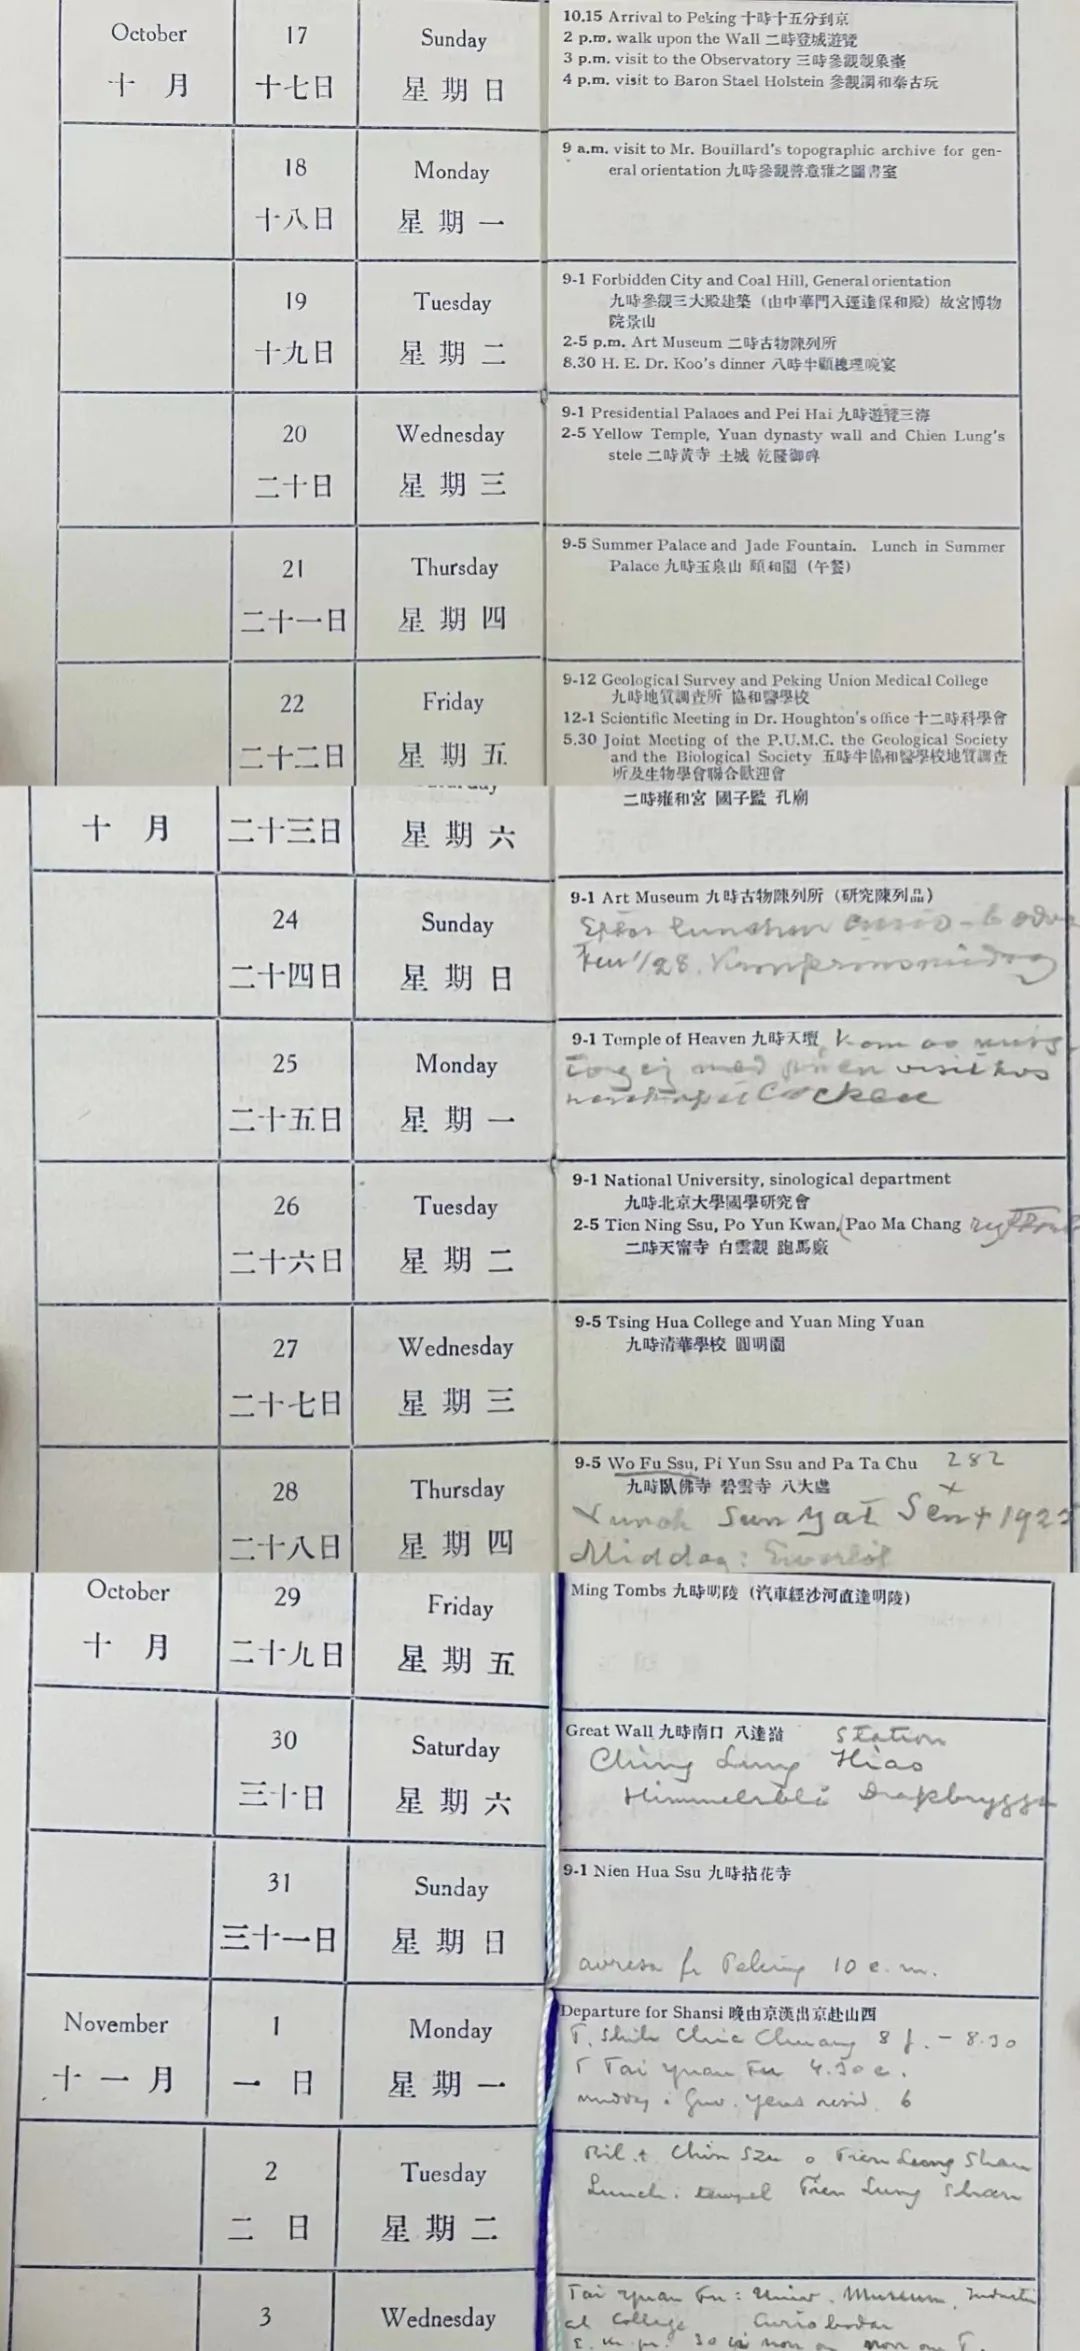 October 17 Sunday
十月 十七日 星期日
10.15 Arrival to Peking 十時十五分到京
2 p.m. walk upon the Wall 二時登城遊覽
3 p.m. visit to the Observatory 三時參觀觀象臺
4 p.m. visit to Baron Stael Holstein 參觀調和泰古玩
18 Monday
十八日 星期一
9 a.m. visit to Mr. Bouillard's topographic archive for gen-
eral orientation 九時參觀普意雅之圖書室
19 Tuesday
十九日 星期二
9-1 Forbidden City and Coal Hill, General orientation
九時參觀三大殿建築（由中華門入逕達保和殿）故宮博物
院景山
2-5 p.m. Art Museum 二時古物陳列所
8.30 H. E. Dr. Koo's dinner 八時半顧總理晚宴
20 Wednesday
二十日 星期三
9-1 Presidential Palaces and Pei Hai 九時遊覽三海
2-5 Yellow Temple, Yuan dynasty wall and Chien Lung's
stele 二時黃寺 土城 乾隆御碑
21 Thursday
二十一日 星期四
9-5 Summer Palace and Jade Fountain. Lunch in Summer
Palace 九時玉泉山 頤和園（午餐）
22 Friday
二十二日 星期五
9-12 Geological Survey and Peking Union Medical College
九時地質調查所 協和醫學校
12-1 Scientific Meeting in Dr. Houghton's office 十二時科學會
5.30 Joint Meeting of the P.U.M.C. the Geological Society
and the Biological Society 五時半協和醫學校地質調查
所及生物學會聯合歡迎會
十月 二十三日 星期六
二時雍和宮 國子監 孔廟
24 Sunday
二十四日 星期日
9-1 Art Museum 九時古物陳列所（研究陳列品）
Efter lunchen curio-bodar
Kronprinsmiddag
25 Monday
二十五日 星期一
9-1 Temple of Heaven 九時天壇 kom
ej med visit hos
26 Tuesday
二十六日 星期二
9-1 National University, sinological department
九時北京大學國學研究會
2-5 Tien Ning Ssu, Po Yun Kwan, (Pao Ma Chang
二時天甯寺 白雲觀 跑馬廠
27 Wednesday
二十七日 星期三
9-5 Tsing Hua College and Yuan Ming Yuan
九時清華學校 圓明園
28 Thursday
二十八日 星期四
9-5 Wo Fu Ssu, Pi Yun Ssu and Pa Ta Chu 282
九時臥佛寺 碧雲寺 八大處
Lunch Sun Yat Sen + 192
Middag: Ewerlöf
October 29 Friday
十月 二十九日 星期五
Ming Tombs 九時明陵（汽車經沙河直達明陵）
30 Saturday
三十日 星期六
Great Wall 九時南口 八達嶺 Station
Ching Lung Hiao
Himmelsblå Drakbryggan
31 Sunday
三十一日 星期日
9-1 Nien Hua Ssu 九時拈花寺
avresa fr Peking 10 e.m.
November 1 Monday
十一月 一日 星期一
Departure for Shansi 晚由京漢出京赴山西
T. Shih Chia Chuang 8 f. - 8.30
T Tai Yuan Fu 4.30 e.
middag i Guv. Yens resid. 6
2 Tuesday
二日 星期二
Bil t. Chin Szu o Tien Lung Shan
Lunch i tempel Tien Lung Shan
3 Wednesday
Tai Yuan Fu: Univ. Museum, Industri
al College Curiobodar